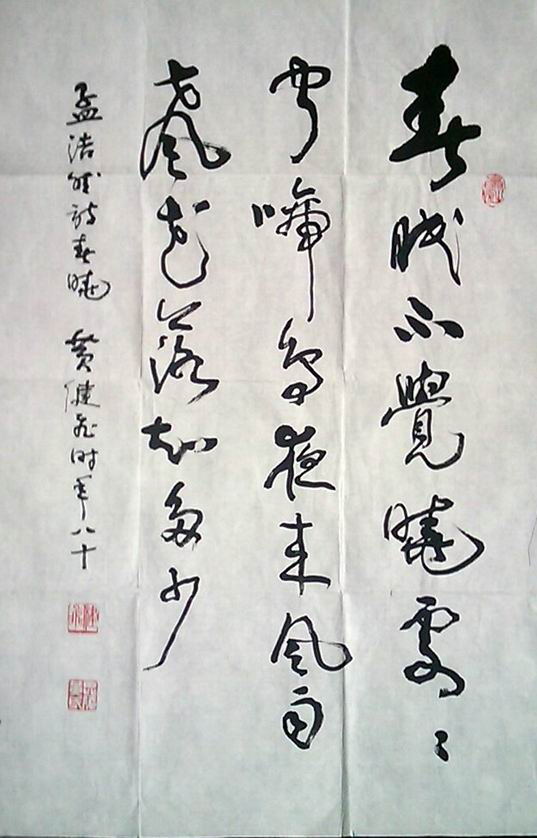 春眠不覺曉處々
聞啼鳥夜来風雨
聲花落知多少
孟浩然詩春曉 黄健 时年八十